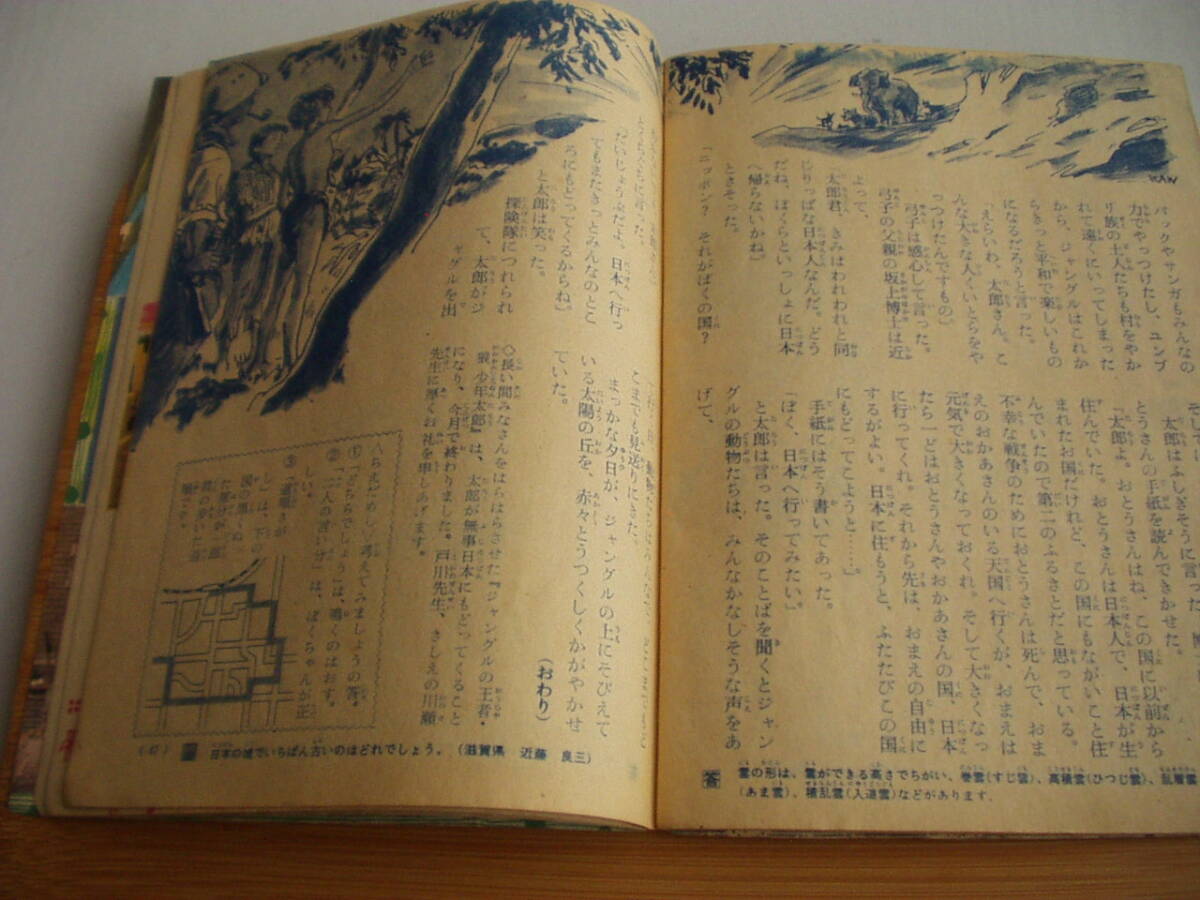 バックやサンガもみんなの
力でやっつけたし、ユンブ
リ族の土人たちも村をやか
れて遠くにいってしまった
から、ジャングルはこれか
らきっと平和で楽しいもの
になるだろうと言った。
「えらいわ、太郎さん。こ
んな大きな人くいとらをや
っつけたんですもの」
弓子は感心して言った。
弓子の父親の坂上博士は近
よって、
「太郎君、きみはわれわれと同
じりっぱな日本人なんだ。どう
だね、ぼくらといっしょに日本
へ帰らないかね」
とさそった。
「ニッポン? それがぼくの国?
太郎はふしぎそうに言った。
とうさんの手紙を読んできかせた。
「太郎よ。おとうさんはね、この国に以前から
住んでいた。おとうさんは日本人で、日本が生
まれたお国だけれど、この国にもながいこと住
んでいたので第二のふるさとだと思っている。
不幸な戦争のためにおとうさんは死んで、おま
えのおかあさんのいる天国へ行くが、おまえは
元気で大きくなっておくれ。そして大きくなっ
たら一どはおとうさんやおかあさんの国、日本
に行ってくれ。それから先は、おまえの自由に
するがよい。日本に住もうと、ふたたびこの国
にもどってこようと……」
手紙にはそう書いてあった。
「ぼく、日本へ行ってみたい」
と太郎は言った。そのことばを聞くとジャン
グルの動物たちは、みんなかなしそうな声をあ
げて、
答 雲の形は、雲ができる高さでちがい、巻雲(すじ雲)、高積雲(ひつじ雲)、乱層雲
(あま雲)、積乱雲(入道雲)などがあります.
「だいじょうぶだよ。日本へ行っ
てもまたきっとみんなのとこ
ろにもどってくるからね」
と太郎は笑った。
探険隊につれられ
て、太郎がジ
ャングルを出
こまでも見送りにきた。
まっかな夕日が、ジャングルの上にそびえて
いる太陽の丘を、赤々とうつくしくかがやかせ
ていた。
(おわり)
◇長い間みなさんをはらはらさせた『ジャングルの王者・
狼少年太郎』は、太郎が無事日本にもどってくること
になり、今月で終わりました。戸川先生、さしえの川瀬
先生に厚くお礼を申しあげます。
①「どちらでしょう」は、鳴くのはおす。
②「二人の言い分」は、ぼくちゃんが正
しい。
問 日本の城でいちばん古いのはどれでしょう。(滋賀県 近藤 良三)